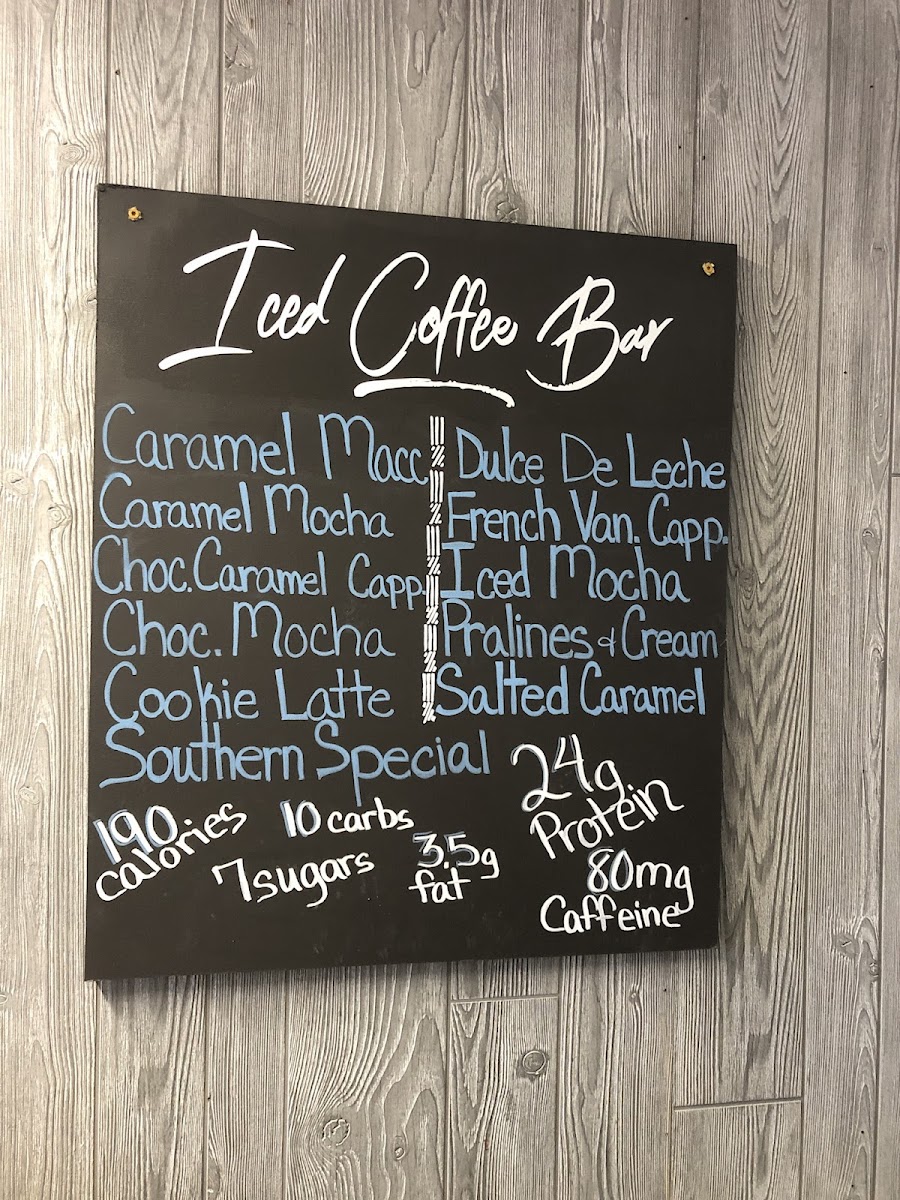 Iced Coffee Bar
Caramel Macc
Caramel Mocha
Choc. Caramel Capp.
Choc. Mocha
Cookie Latte
Southern Special
Dulce De Leche
French Van. Capp.
Iced Mocha
Pralines & Cream
Salted Caramel
190
calories
10 carbs
7 sugars
3.5g
fat
24g
Protein
80mg
Caffeine